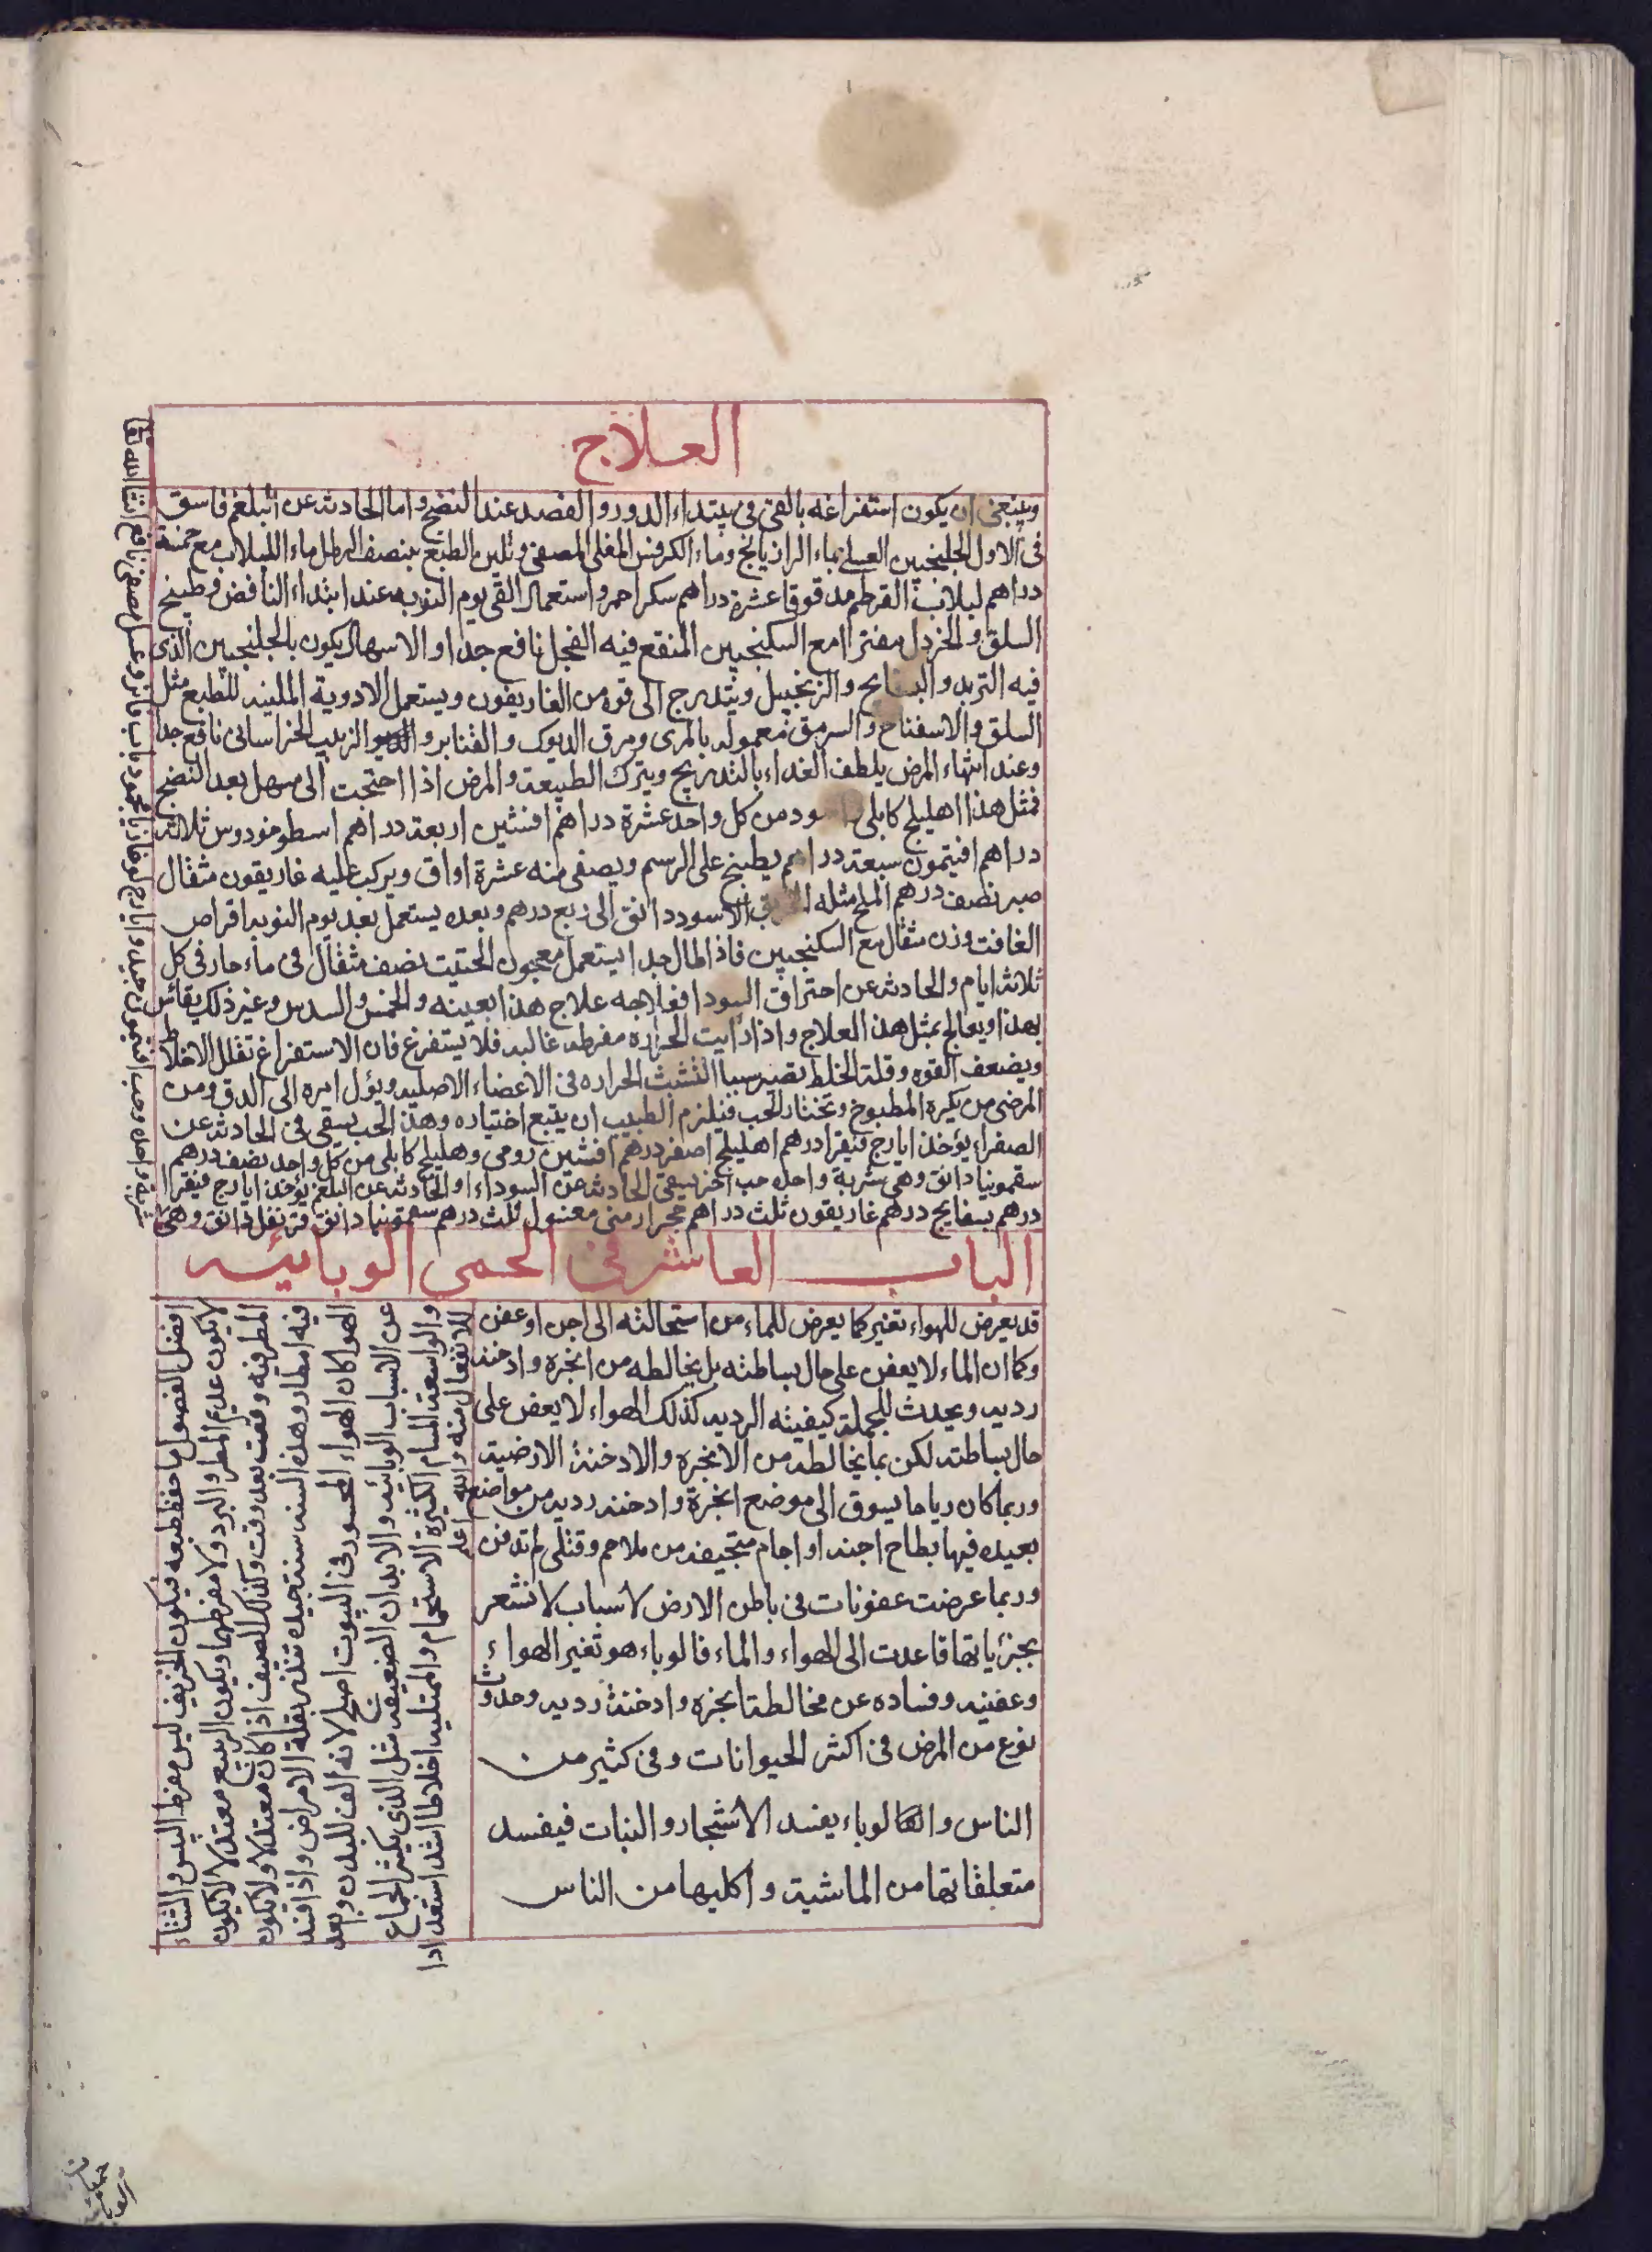 العلاج
وينبغى ان يكون استفراغه بالقى فى مبتداء الدور والفصد عند النضج واما الحادث عن البلغم فاسق
فى الاول الجلنجبين العسلى بماء الرازيانج وماء الكرفس المغلى المصفى وتلين الطبع بنصف الرطل ماء اللبلاب مع خمسة
دراهم لبلاب القرطم مدقوقا عشرة دراهم سكر احمر واستعمال القى يوم النوبه عند ابتداء النافض فى طبيخ
السلق والخردل مفترا مع السكنجبين المنقع فيه الفجل نافع جدا والاسهال يكون بالجلنجبين الذى
فيه التربد والبسفايج والزنجبيل ويتدرج الى قوه من الغاريقون ويستعمل الادوية الملينه للطبع مثل
السلق والاسفناخ والسرمق معموله بالمرى ومرق الديوك والقنابر والزبيب الخراسانى نافع جدا
وعند انتهاء المرض يلطف الغداء بالتدريج ويترك الطبيعة والمرض اذا احتجت الى مسهل بعد النضج
فمثل هذا اهليلج كابلى واسود من كل واحد عشرة دراهم افسنتين اربعة دراهم اسطوخودوس ثلاثه
دراهم افيتمون سبعة دراهم يطبخ على الرسم ويصفى منه عشرة اواق ويركب عليه غاريقون مثقال
صبر نصف درهم الملح مثله الخربق الاسود دانق الى ربع درهم وبعده يستعمل بعد يوم النوبه اقراص
الغافت وزن مثقال مع السكنجبين فاذا طال جدا يستعمل معجون الحتيت نصف مثقال فى ماء حار فى كل
ثلاثه ايام والحادث عن احتراق السودا فعلاجه علاج هذا بعينه والخمس والسدس وغير ذلك يقاس
بهذا ويعالج بمثل هذ العلاج واذا رايت الحراره مفرطه غالبه فلا يستفرغ فان الاستفراغ تقلل الاخلاط
ويضعف القوه وقلة الخلط تصير سببا لتشبث الحراره فى الاعضاء الاصليه ويؤل امره الى الدق ومن
المرضى من يكره المطبوخ وتختار الحب فيلزم الطبيب ان يتبع اختياره وهذ الحب يسقى فى الحادث عن
الصفراء يؤخذ ايارج فيقرا درهم اهليلج اصفر درهم افسنتين رومى وهليلج كابلى من كل واحد نصف درهم
سقمونيا دانق وهى شربة واحده حب اخر يسقى الحادث عن السوداء او الحادث عن البلغم يؤخذ ايارج فيقرا
درهم بسفايج درهم غاريقون ثلث دراهم حجر ارمنى مغسول ثلث درهم سقمونيا دانق قرنفل دانق وهى
شربة واحده وحب
الباب العاشر فى الحمى الوبائيه
قد يعرض للهواء تغير كما يعرض للماء من استحالته الى اجن او عفن
وكما ان الماء لا يعفن على حال بساطته بل يخالطه من ابخره وادخنه
رديه ويحدث للجملة كيفيته الرديه كذلك الهواء لا يعفن على
حال بساطته لكن بما يخالطه من الابخره والادخنة الارضيه
وربما كان رياحا يسوق الى موضع ابخرة وادخنه رديه من مواضع
بعيده فيها بطاح اجنه او اجام متجيفه من ملاحم وقتلى لم تدفن
وربما عرضت عفونات فى باطن الارض لاسباب لا نشعر
بجزئياتها قاعدت الى الهواء والماء فالوباء هو تغير الهواء
وعفنيه وفساده عن مخالطة ابخره وادخنة رديه وحدوث
نوع من المرض فى اكثر الحيوانات وفى كثير من
الناس والوباء يفسد الاشجار والنبات فيفسد
متعلقاتها من الماشية واكليها من الناس
افضل الفصول ما حفظ طبعه فيكون الخريف ليس مفرط اليبس والشتاء
لا يكون عديم المطر والبرد ولا مفرطهما ويكون الربيع معتدلا لا يكون
المطر فيه وقعت بعد وقت وكذلك الصيف اذا كان معتدلا ولا يكون
فيه امطار وهذه السنه سنة جيده تنذر بقلة الامراض واذا فسد
الهوا كان الهواء المحسور فى البيوت اصلح لانه الف للبدن وبعد
عن الاسباب الوبائيه والابدان الضعيفه مثل الذى يكثر الجماع
والواسعة المسام الكثيرة الاستحمام والممتليه اخلاطا اشد استعدادا
للانفعال منه والله اعلم